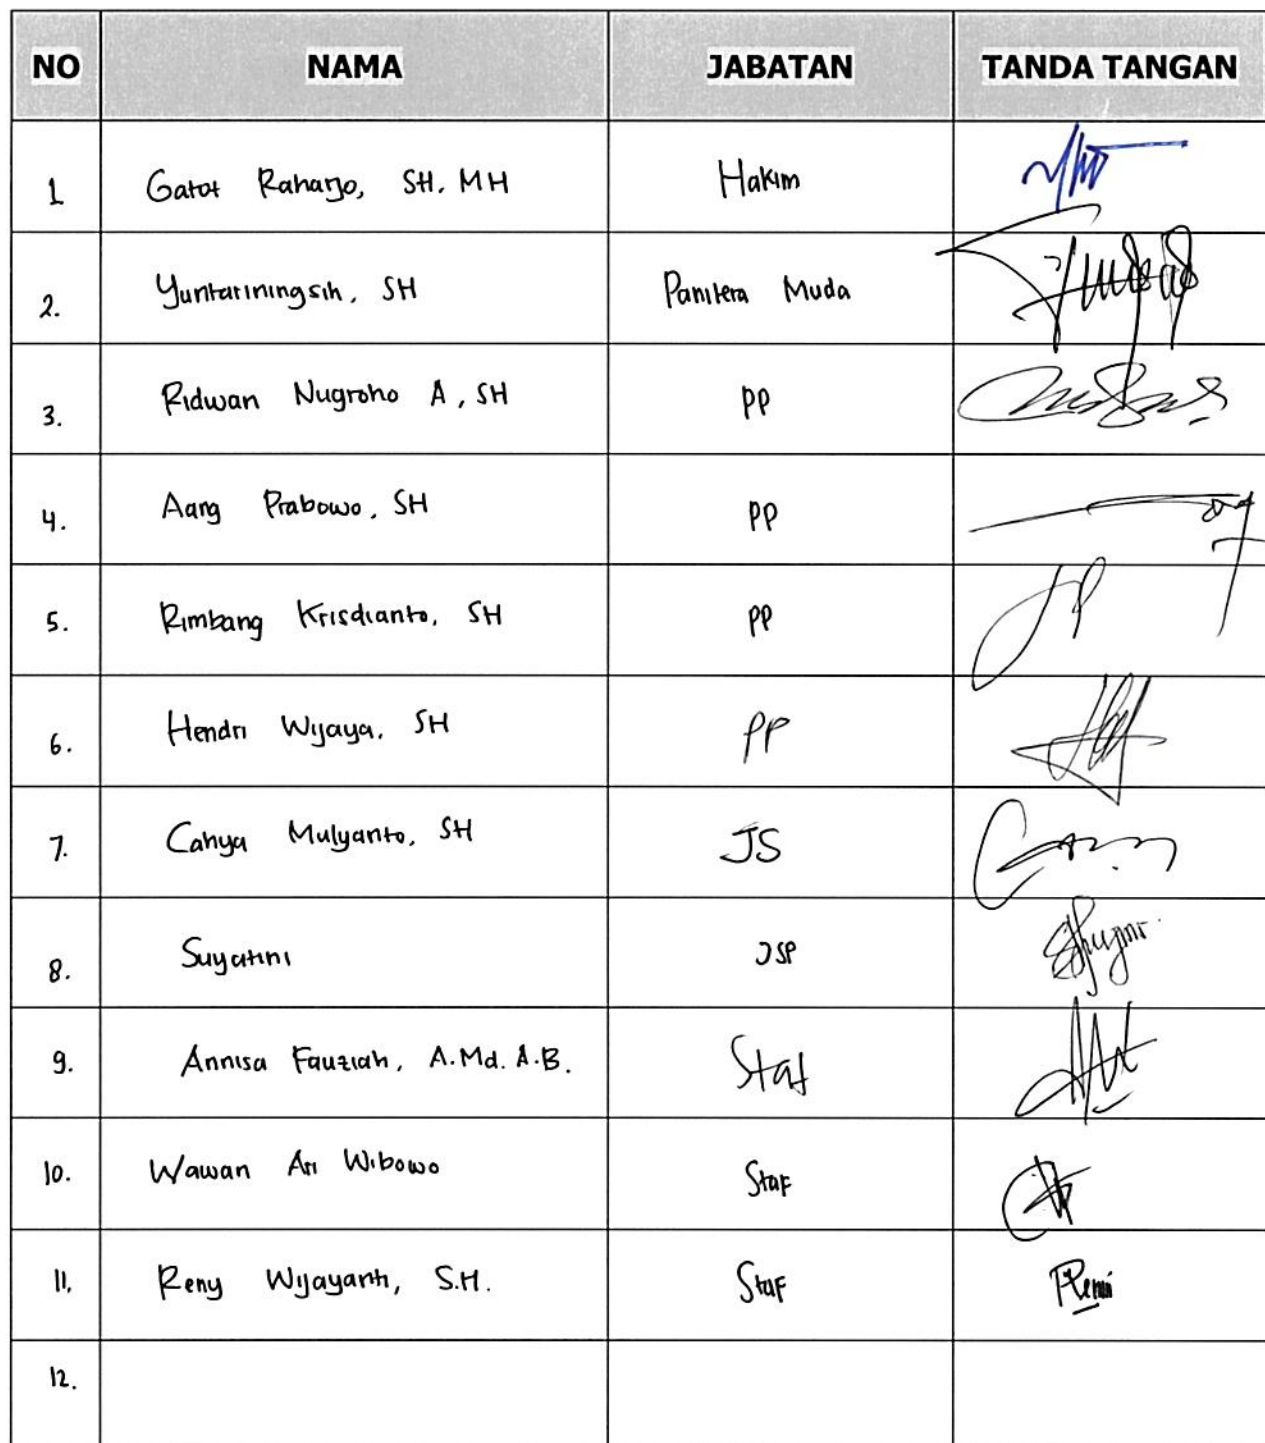 NO NAMA JABATAN TANDA TANGAN
1 Gatot Raharjo, SH. MH Hakim
2. Yuntariningsih, SH Panitera Muda
3. Ridwan Nugroho A, SH PP
4. Aang Prabowo, SH PP
5. Rimbang Krisdianto, SH PP
6. Hendri Wijaya, SH PP
7. Cahya Mulyanto, SH JS
8. Suyatini JSP
9. Annisa Fauziah, A.Md. A.B. Staf
10. Wawan Ari Wibowo Staf
11. Reny Wijayanti, S.H. Staf Reni
12.